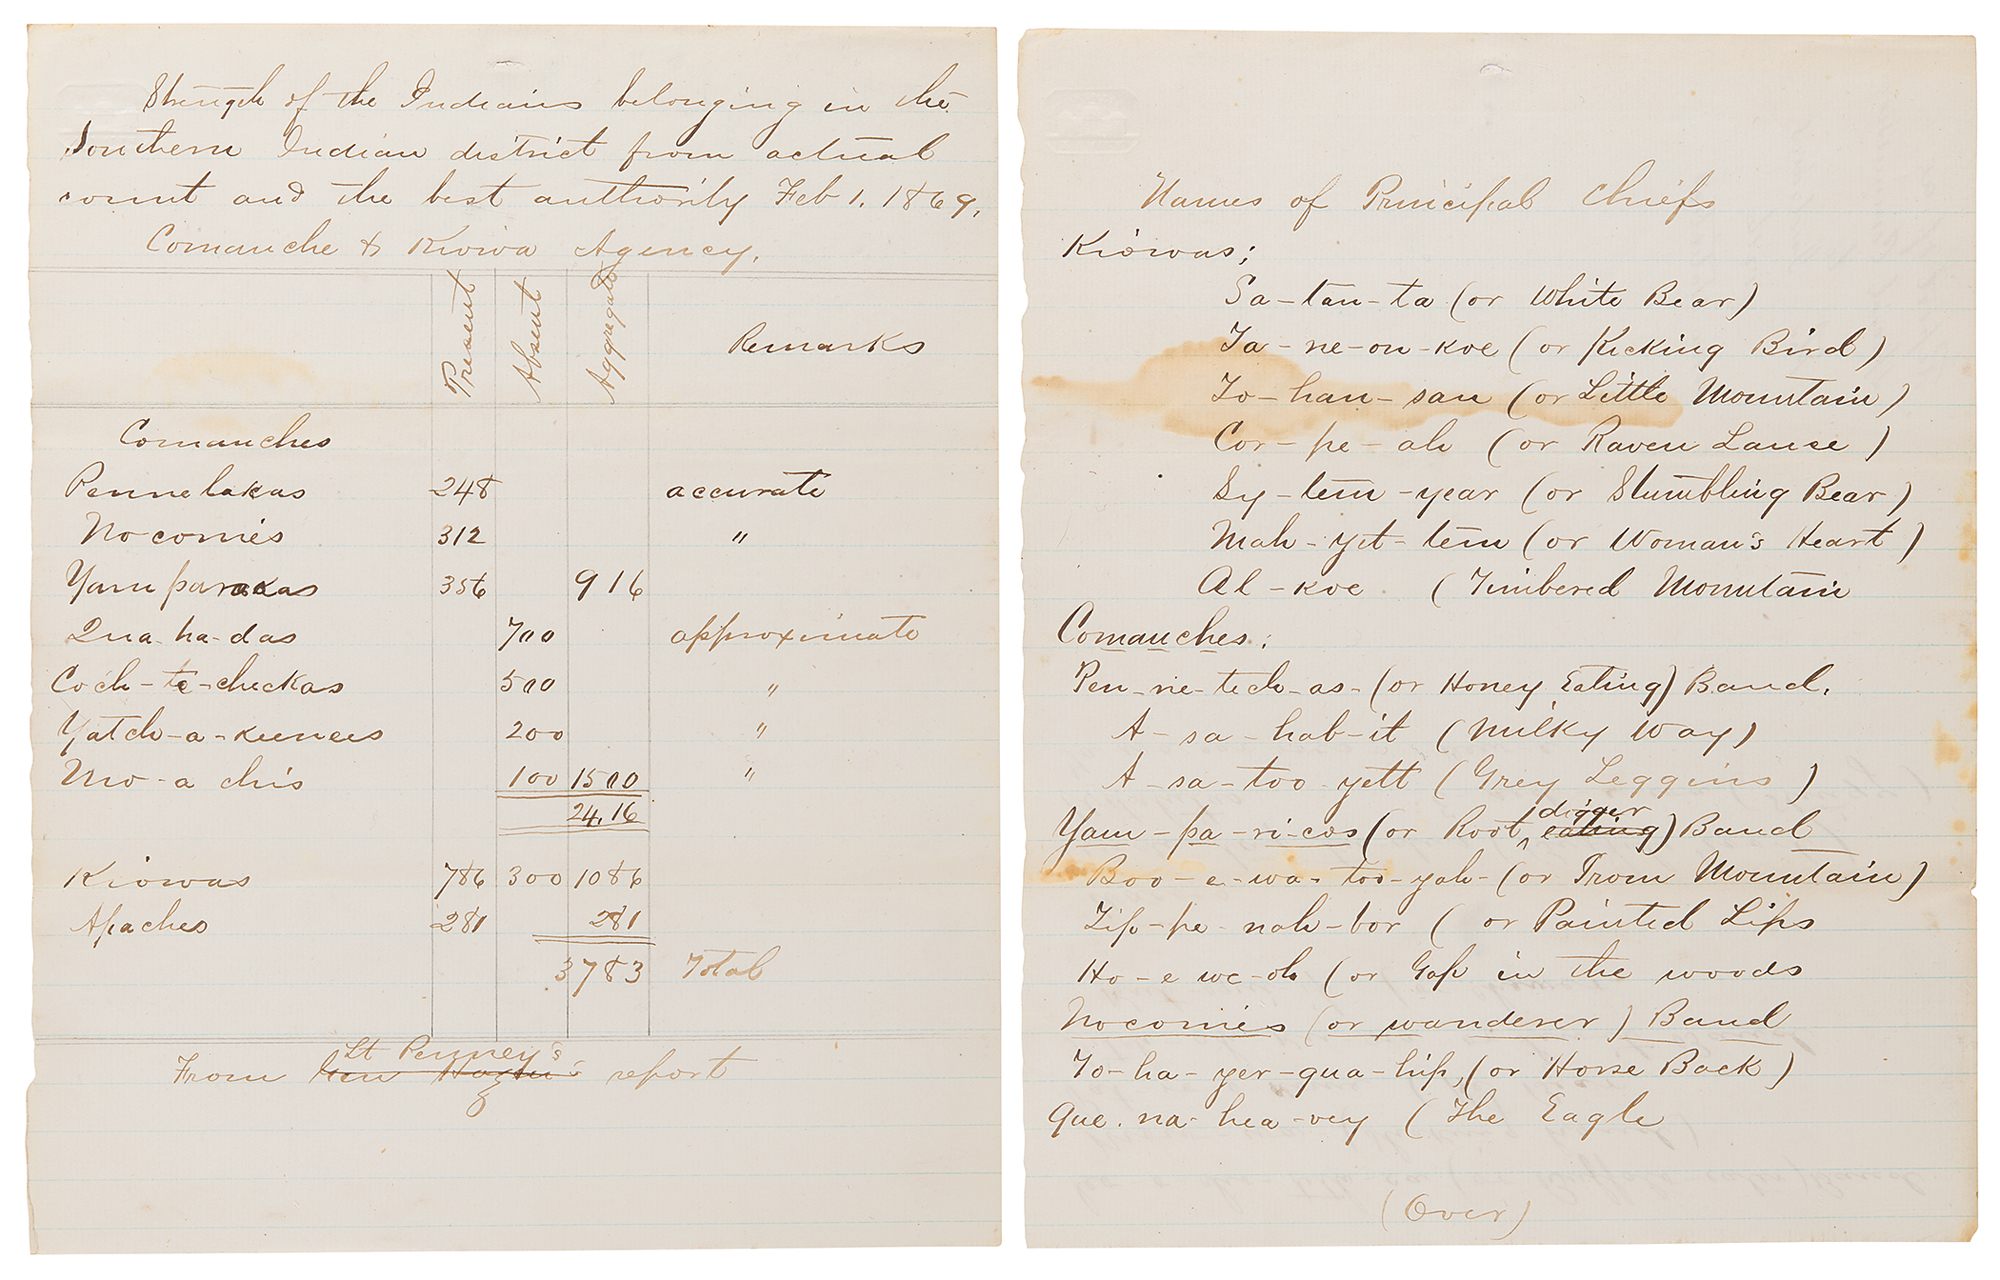 Strength of the Indians belonging in the
Southern Indian district from actual
count and the best authority Feb 1. 1869.
Comanche & Kiowa Agency.
Present Absent Aggregate Remarks
Comanches
Pennelakas 248 accurate
Nocomies 312 "
Yamparakas 356 916
Qua-ha-das 700 approximate
Coch-te-checkas 500 "
Yatch-a-kenees 200 "
Mo-a chis 100 1500 "
24.16
Kiowas 786 300 1086
Apaches 281 281
3783 Total
Lt Penney's
From Gen Hazen's report
Names of Principal Chiefs
Kiowas;
Sa-tan-ta (or White Bear)
Ta-ne-on-koe (or Kicking Bird)
To-han-san (or Little Mountain)
Cor-pe-ah (or Raven Lance)
Sy-tem-year (or Stumbling Bear)
Mah-yet-tem (or Woman's Heart)
Al-koe (Timbered Mountain
Comanches:
Pen-ne-tech-as-(or Honey Eating) Band.
A-sa-hab-it (Milky Way)
A-sa-too-yett (Grey Leggins)
digger
Yam-pa-ri-cos (or Root, eating) Band
Boo-e-wa-too-yah-(or Iron Mountain)
Tip-pe-nah-bor (or Painted Lips
Ho-e we-oh (or Gap in the woods
Nocomies (or wanderer) Band
To-ha-yer-qua-hip, (or Horse Back)
Que-na-hea-vey (The Eagle
(Over)